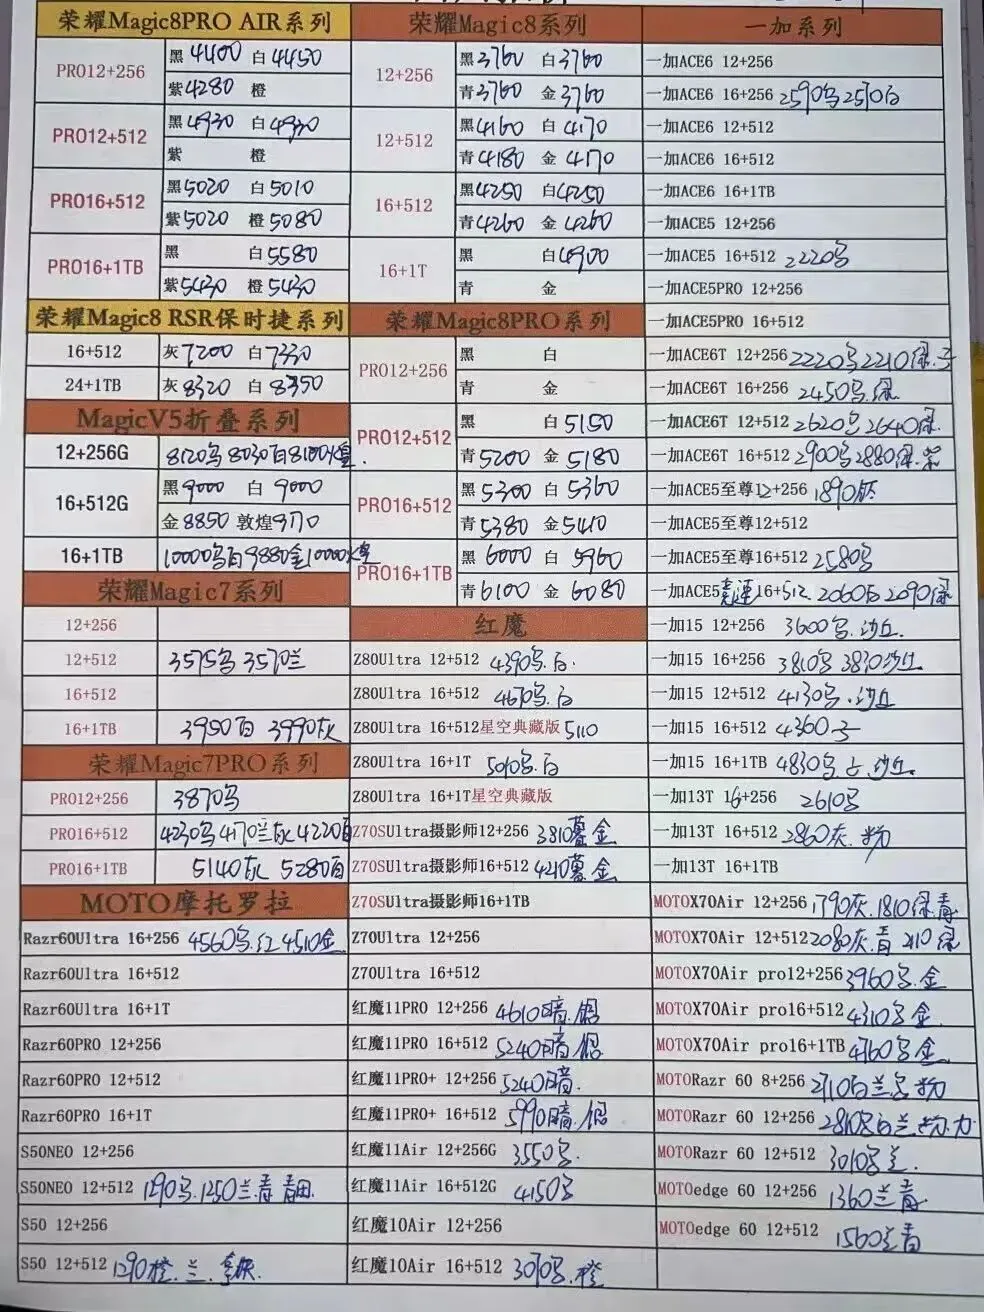 荣耀Magic8PRO AIR系列
PRO12+256 黑4400 白4450
紫4280 橙
PRO12+512 黑4930 白4930
紫 橙
PRO16+512 黑5020 白5010
紫5020 橙5080
PRO16+1TB 黑 白5580
紫5430 橙5430
荣耀Magic8 RSR保时捷系列
16+512 灰7200 白7330
24+1TB 灰8320 白8350
MagicV5折叠系列
12+256G 8120乌8030白8100
16+512G 黑9000 白9000
金8850 敦煌9170
16+1TB 10000乌白9880金10000
荣耀Magic7系列
12+256
12+512 3575乌3570兰
16+512
16+1TB 3950白 3990灰
荣耀Magic7PRO系列
PRO12+256 3870乌
PRO16+512 4230乌4170兰灰4220白
PRO16+1TB 5140灰 5280白
MOTO摩托罗拉
Razr60Ultra 16+256 4560乌.红4510金
Razr60Ultra 16+512
Razr60Ultra 16+1T
Razr60PRO 12+256
Razr60PRO 12+512
Razr60PRO 16+1T
S50NEO 12+256
S50NEO 12+512 1290乌.1250兰.青
S50 12+256
S50 12+512 1290橙.兰.
荣耀Magic8系列
12+256 黑3760 白3760
青3760 金3760
12+512 黑4160 白4170
青4180 金4170
16+512 黑4250 白4250
青4260 金4260
16+1T 黑 白4900
青 金
荣耀Magic8PRO系列
PRO12+256 黑 白
青 金
PRO12+512 黑 白5150
青5200 金5180
PRO16+512 黑5300 白5360
青5380 金5410
PRO16+1TB 黑6000 白5960
青6100 金6080
红魔
Z80Ultra 12+512 4390乌.白
Z80Ultra 16+512 4670乌.白
Z80Ultra 16+512星空典藏版 5110
Z80Ultra 16+1T 5010乌.白
Z80Ultra 16+1T星空典藏版
Z70SUltra摄影师12+256 3810 金
Z70SUltra摄影师16+512 4210 金
Z70SUltra摄影师16+1TB
Z70Ultra 12+256
Z70Ultra 16+512
红魔11PRO 12+256 4610暗.银
红魔11PRO 16+512 5240暗.银
红魔11PRO+ 12+256 5240暗.
红魔11PRO+ 16+512 5990暗.银
红魔11Air 12+256G 3550乌.
红魔11Air 16+512G 4150乌
红魔10Air 12+256
红魔10Air 16+512 3070乌.橙
一加系列
一加ACE6 12+256
一加ACE6 16+256 2590乌2570白
一加ACE6 12+512
一加ACE6 16+512
一加ACE6 16+1TB
一加ACE5 12+256
一加ACE5 16+512 2220乌
一加ACE5PRO 12+256
一加ACE5PRO 16+512
一加ACE6T 12+256 2220乌2210绿.
一加ACE6T 16+256 2450乌.绿
一加ACE6T 12+512 2620乌2640绿.
一加ACE6T 16+512 2900乌2880绿.紫
一加ACE5至尊12+256 1890钛
一加ACE5至尊12+512
一加ACE5至尊16+512 2580乌
一加ACE5竞速16+512 2060白2090绿
一加15 12+256 3600乌.沙丘.
一加15 16+256 3810乌 3830沙丘
一加15 12+512 4130乌.沙丘
一加15 16+512 4360
一加15 16+1TB 4830乌 沙丘
一加13T 16+256 2610乌
一加13T 16+512 2860灰.粉
一加13T 16+1TB
MOTOX70Air 12+256 1790灰.1810绿.青
MOTOX70Air 12+512 2080灰.青 2110 绿
MOTOX70Air pro12+256 3960乌.金
MOTOX70Air pro16+512 4310乌 金
MOTOX70Air pro16+1TB 4760乌 金
MOTORazr 60 8+256 2710白兰乌粉
MOTORazr 60 12+256 2810乌白兰粉
MOTORazr 60 12+512 3010乌兰.
MOTOedge 60 12+256 1360兰青
MOTOedge 60 12+512 1560兰青